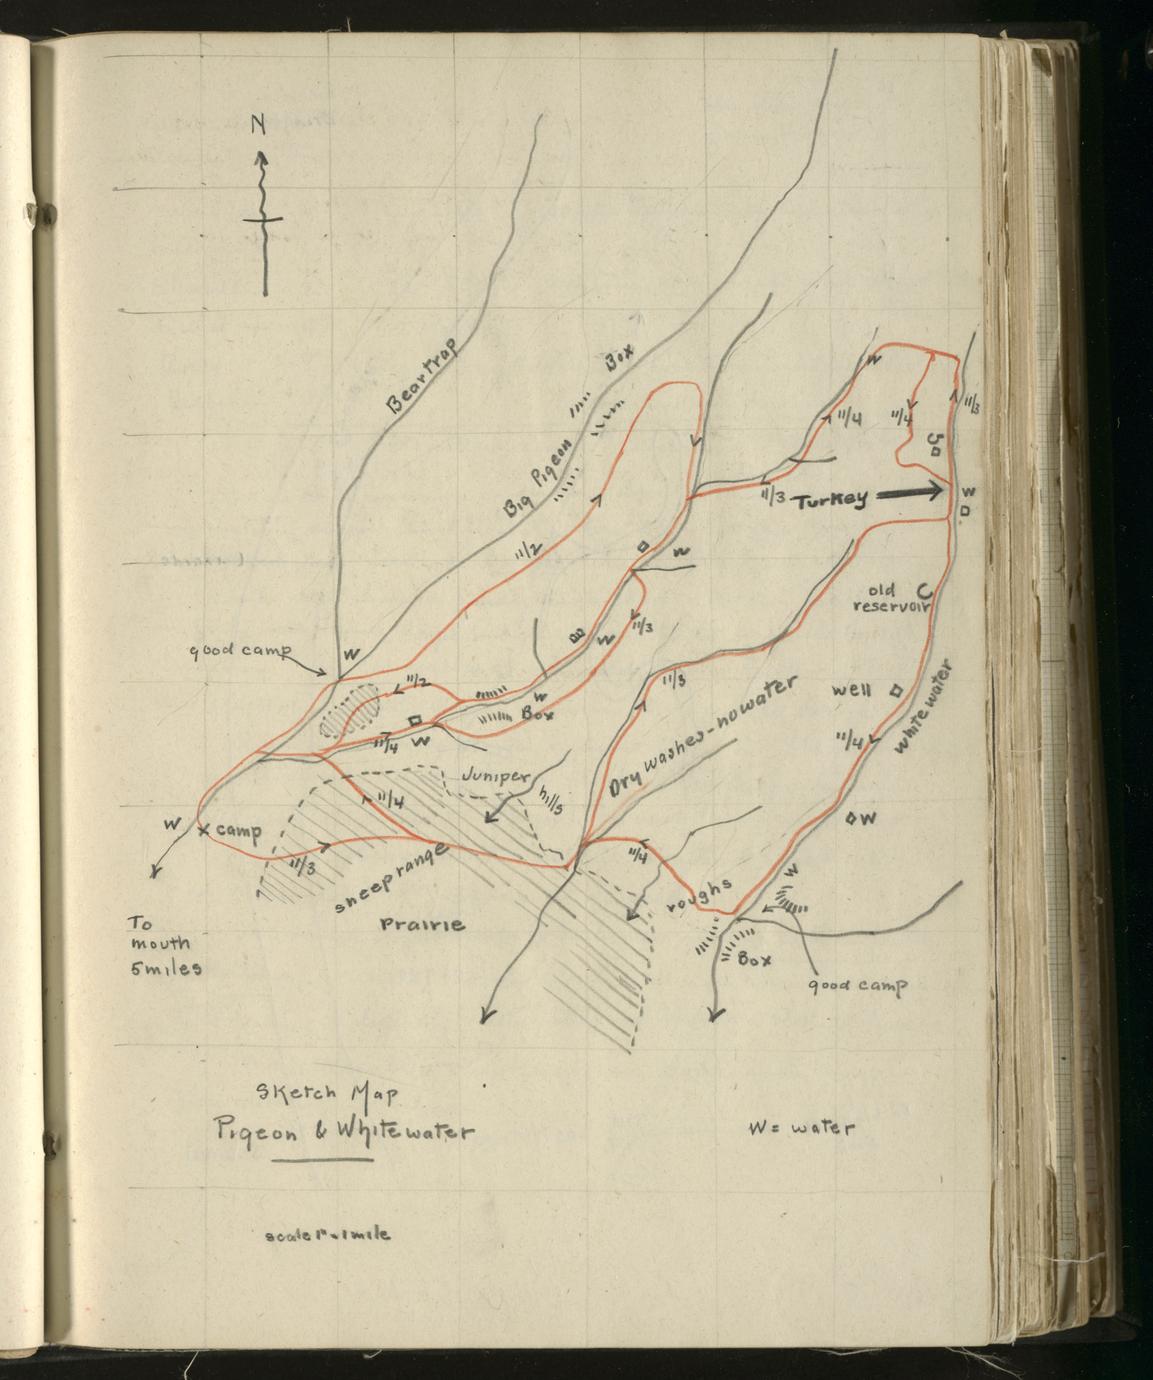 N
Beartrap
Big Pigeon
Box
W
11/4
11/4
11/3
11/3
Turkey
W
11/2
W
old
reservoir
good camp
W
W
11/3
11/2
11/3
W
Box
11/4
W
well
Whitewater
11/4
Dry washes - no water
Juniper
hills
11/4
W
W
camp
11/3
11/4
W
sheep range
roughs
Prairie
Box
good camp
To
mouth
5 miles
Sketch Map
Pigeon & Whitewater
W = water
scale 1" = 1 mile